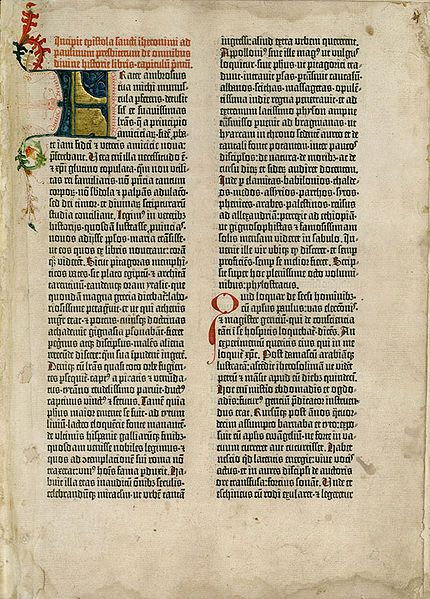 Incipit epistola sancti iheronimi ad
paulinum presbiterum de omnibus
divine historie libris·capitulū pmū.
Frater ambrosius
tua michi munus-
cula pferens·detulit
sil' et suavissimas
lrās·q̄ a principio
amiciciaꝝ·fidē pba-
te iam fidei et veteris amicicie nova
pferebant. Vera em̄ illa necessitudo ē·
et xpi glutino copulata·qm̄ non utili-
tas rei familiaris·nō pn̄cia tantum
corpoꝝ·nō sb̄dola et palpās adulacō·
sed dei timor·et divinaꝝ scripturaꝝ
studia conciliant. Legim⁹ in veterib⁹
historijs·quosdā lustrasse pvincias·
novos adijsse pplos·maria trāsisse·
ut eos quos ex libris noverant: corā
q̄ viderēt. Sicut pitagoras memphi-
ticos vates·sic plato egiptū·et architā
tarentinū·eandemq; oram ytalie·que
quondā magna grecia dicebat̄·labo-
riosissime peragravit: ut qui athenis
mgr̄ erat·et potens·cuiusq; doctrinas
achademie gignasia psonabāt·fieret
peregrinus atq; discipulus·malēs aliena
verecunde discere: qm̄ sua īpudenter ingerere.
Deniq; cū lrās quasi toto orbe fugien-
tes persequit̄·captus a piratis et venunda-
tus·tyranno crudelissimo paruit·duct⁹
captivus vinct⁹ et servus. Tamē quia
phūs maior emente se fuit. ad tytum
livium·lacteo eloquentie fonte manantē·
de ultimis hispanie galliarūq; finib⁹·
quosdam venisse nobiles legimus·et
quos ad cōtemplacionē sui roma nō
traxerat: uni⁹ hoīs fama pduxit. Ha-
buit illa etas inauditū om̄ib⁹ seculis·
celebrandūq; miraclm̄·ut urbē tantā
ingressi: aliud extra urbem quererent.
Appolloni⁹ sive ille mag⁹ ut vulgus
loquitur·sive phūs·ut pitagorici tra-
dunt·intravit psas·ptransivit caucasū·
albanos·scithas·massagetas·opulē-
tissima indie regna penetravit·et ad
extremum latissimo physon amne
trāsmisso puenit ad bragmanas·ut
hyarcam in throno sedentē aureo et de
tantali fonte potantem·inter paucos
discipl'os·de natura·de moribus·ac de
cursu dierū et sideꝝ audiret docentem.
Inde p elamitas·babilonios·chalde-
os·medos·assyrios·parthos·syros·
phenices·arabes·palestinos·reversus
ad alexandriā: perrexit ad ethiopiā·
ut gignosophistas et famosissimam
solis mensam videret in sabulo. In-
venit ille vir ubiq; qd̄ disceret: et semp
proficiēs·semp se melior fieret. Scrip-
sit super hoc plenissime octo volumi-
nibus: phylostratus.
Quid loquar de sēcli hominib⁹·
cū aplūs paulus·vas electōis·
et magister gencium·qui de consciencia
tāti ī se hospitis loquebat̄·dicēs. An
experimentū queritis eius qui in me
loquit̄ xpc̄. Post damascū arabiāq;
lustratā: ascēdit iherosolimā ut videret
petrū et māsit apud eū dieb⁹ quindeci.
Hoc em̄ misterio ebdomadis et ogdo-
adis: futur⁹ genciū pdicator instruen-
dus erat. Rursūq; post ānos q̄tuor-
decim assumpto barnaba et tyto: expo-
suit cū aplīs evangeliū·ne forte in va-
cuum curreret aut cucurrisset. Habet
nescio qd̄ latentis energie: vive vocis
actus·et in aures discipl'i de auctoris
ore transfusa: forcius sonat. Unde et
eschineus cū rodi exularet·et legeretur